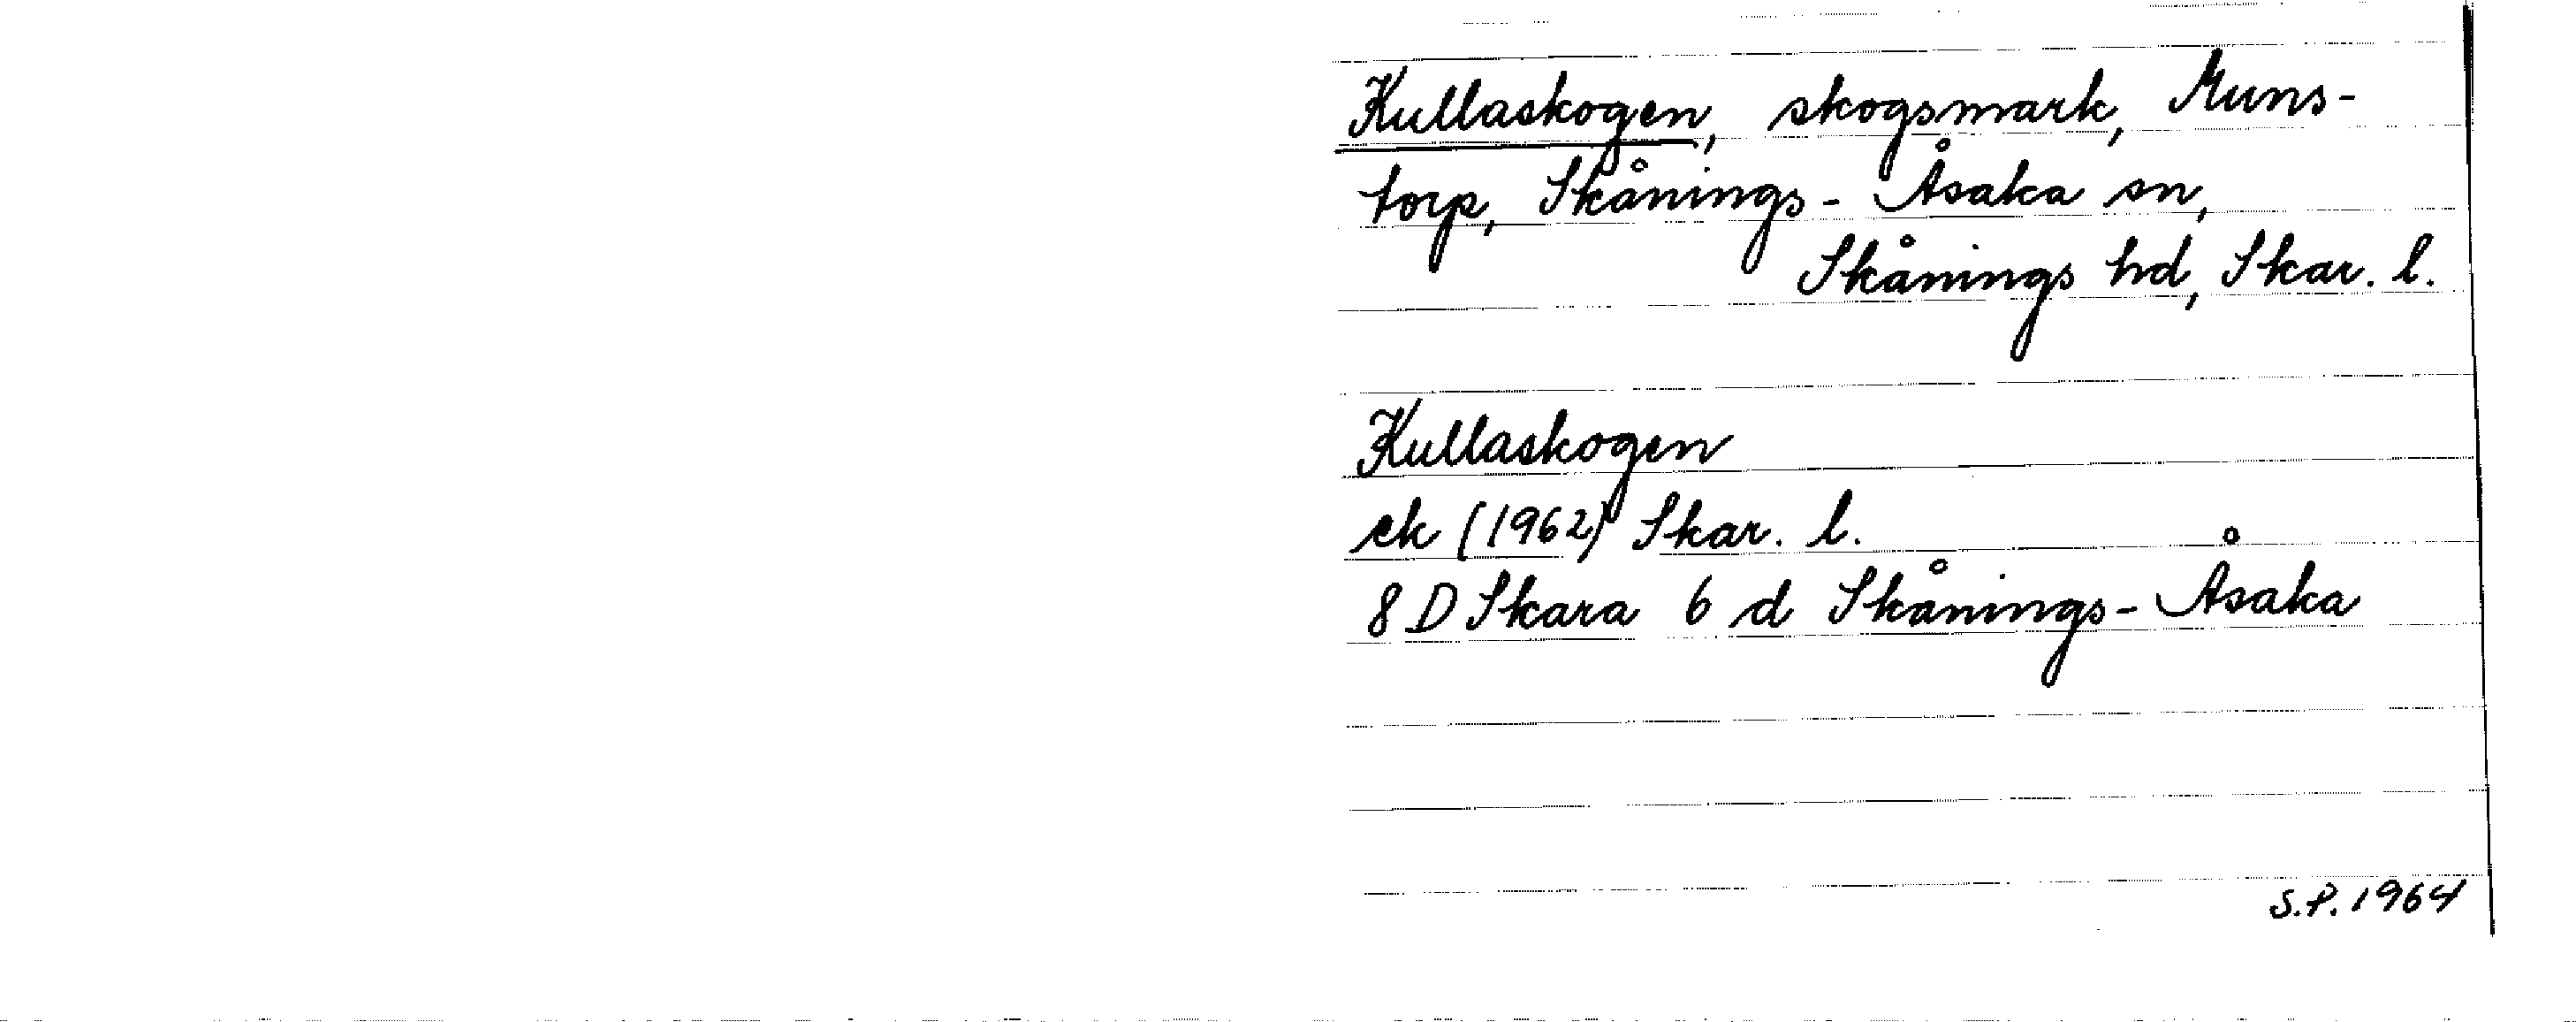 Kullaskogen, skogsmark, Muns-
torp, Skånings-Åsaka sn,
Skånings hd, Skar. l.
Kullaskogen
ek (1962) Skar. l.
8 D Skara 6 d Skånings-Åsaka
S.P. 1964